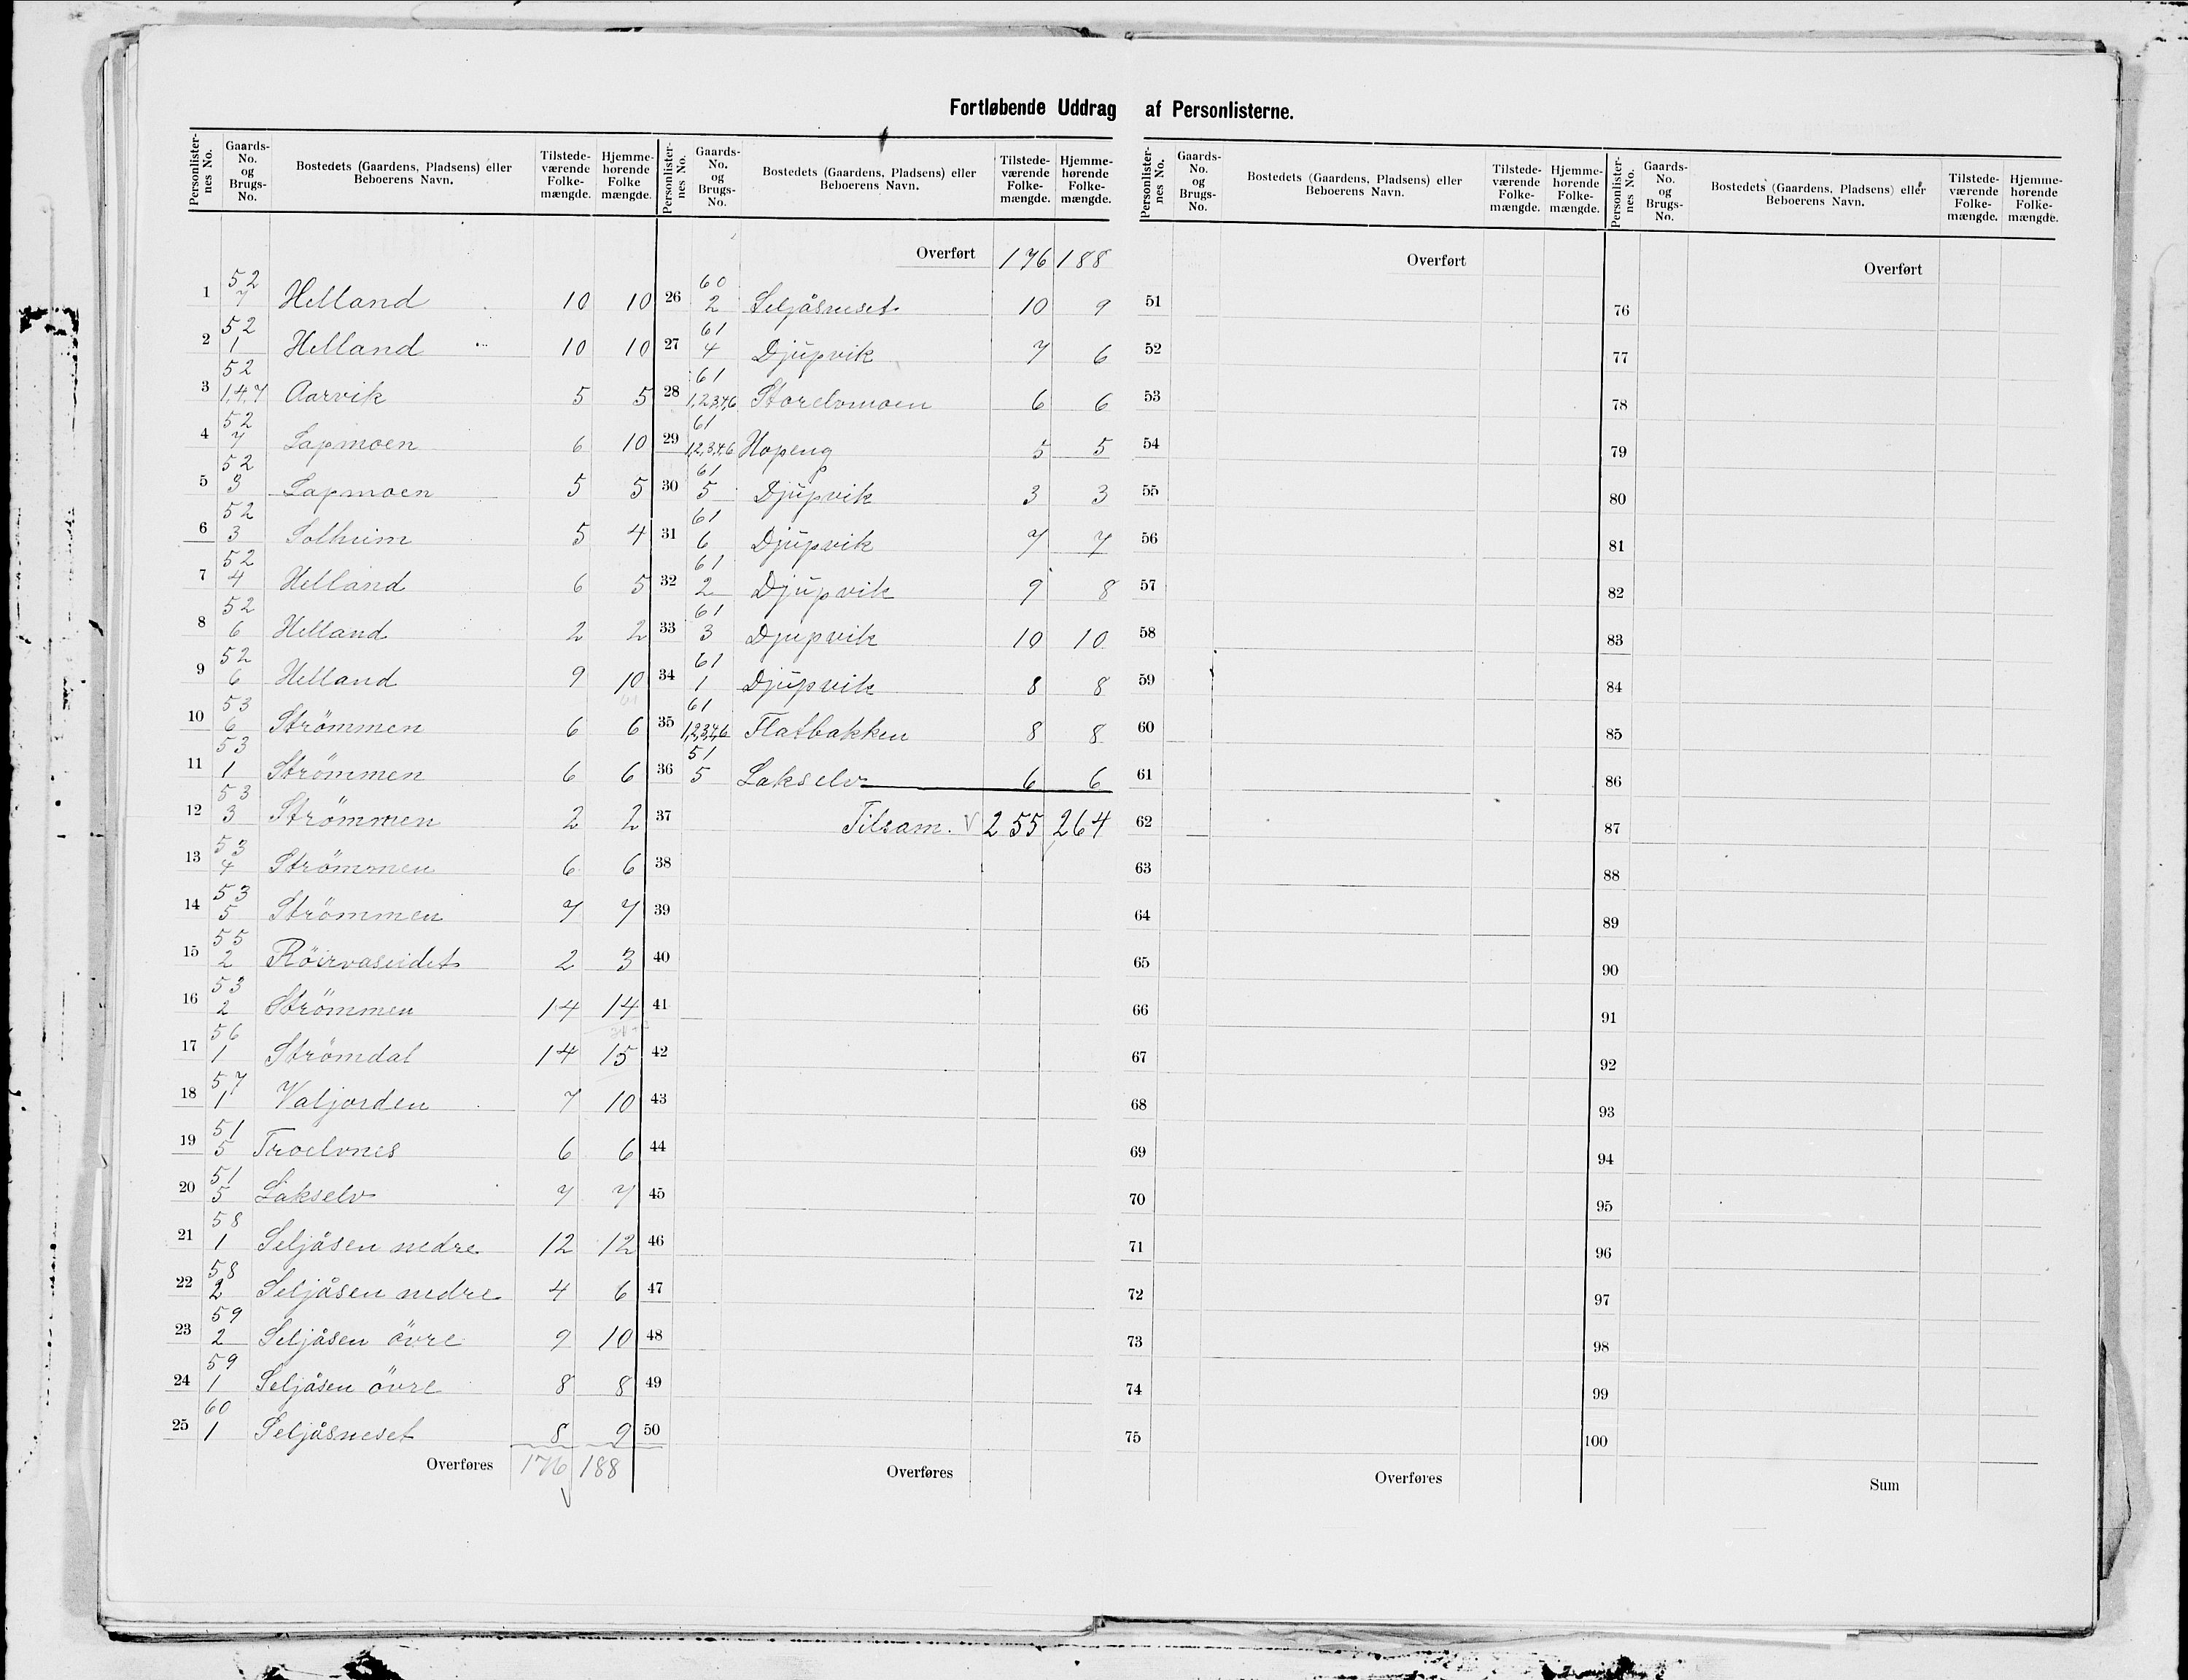 Fortløbende Uddrag af Personlisterne.
Personlisternes No. Gaards-No. og Brugs-No. Bostedets (Gaardens, Pladsens) eller Beboerens Navn. Tilstedeværende Folkemængde. Hjemmehørende Folkemængde.
1 52 7 Helland 10 10
2 52 1 Helland 10 10
3 52 1,4,7 Aarvik 5 5
4 52 7 Lapmoen 6 10
5 52 3 Lapmoen 5 5
6 52 3 Solheim 5 4
7 52 4 Helland 6 5
8 52 6 Helland 2 2
9 52 6 Helland 9 10
10 53 6 Strömmen 6 6
11 53 1 Strömmen 6 6
12 53 3 Strömmen 2 2
13 53 4 Strömmen 6 6
14 53 5 Strömmen 7 7
15 55 2 Röirvaseidet 2 3
16 53 2 Strömmen 14 14
17 56 1 Strömdal 14 15
18 57 1 Valjorden 7 10
19 51 5 Troelvnes 6 6
20 51 5 Lakselv 7 7
21 58 1 Seljåsen nedre 12 12
22 58 2 Seljåsen nedre 4 6
23 59 2 Seljåsen övre 9 10
24 59 1 Seljåsen övre 8 8
25 60 1 Seljåsneset 8 9
Overføres 176 188
Personlisternes No. Gaards-No. og Brugs-No. Bostedets (Gaardens, Pladsens) eller Beboerens Navn. Tilstedeværende Folkemængde. Hjemmehørende Folkemængde.
Overført 176 188
26 60 2 Seljåsneset 10 9
27 61 4 Djupvik 7 6
28 61 1,2,3,4,6 Storelvmoen 6 6
29 61 1,2,3,4,6 Hopeng 5 5
30 61 5 Djupvik 3 3
31 61 6 Djupvik 7 7
32 61 2 Djupvik 9 8
33 61 3 Djupvik 10 10
34 61 1 Djupvik 8 8
35 61 1,2,3,4,6 Flatbakken 8 8
36 51 5 Lakselv 6 6
37 Tilsam. 255 264
38
39
40
41
42
43
44
45
46
47
48
49
50
Overføres
Personlisternes No. Gaards-No. og Brugs-No. Bostedets (Gaardens, Pladsens) eller Beboerens Navn. Tilstedeværende Folkemængde. Hjemmehørende Folkemængde.
Overført
51
52
53
54
55
56
57
58
59
60
61
62
63
64
65
66
67
68
69
70
71
72
73
74
75
Overføres
Personlisternes No. Gaards-No. og Brugs-No. Bostedets (Gaardens, Pladsens) eller Beboerens Navn. Tilstedeværende Folkemængde. Hjemmehørende Folkemængde.
Overført
76
77
78
79
80
81
82
83
84
85
86
87
88
89
90
91
92
93
94
95
96
97
98
99
100
Sum